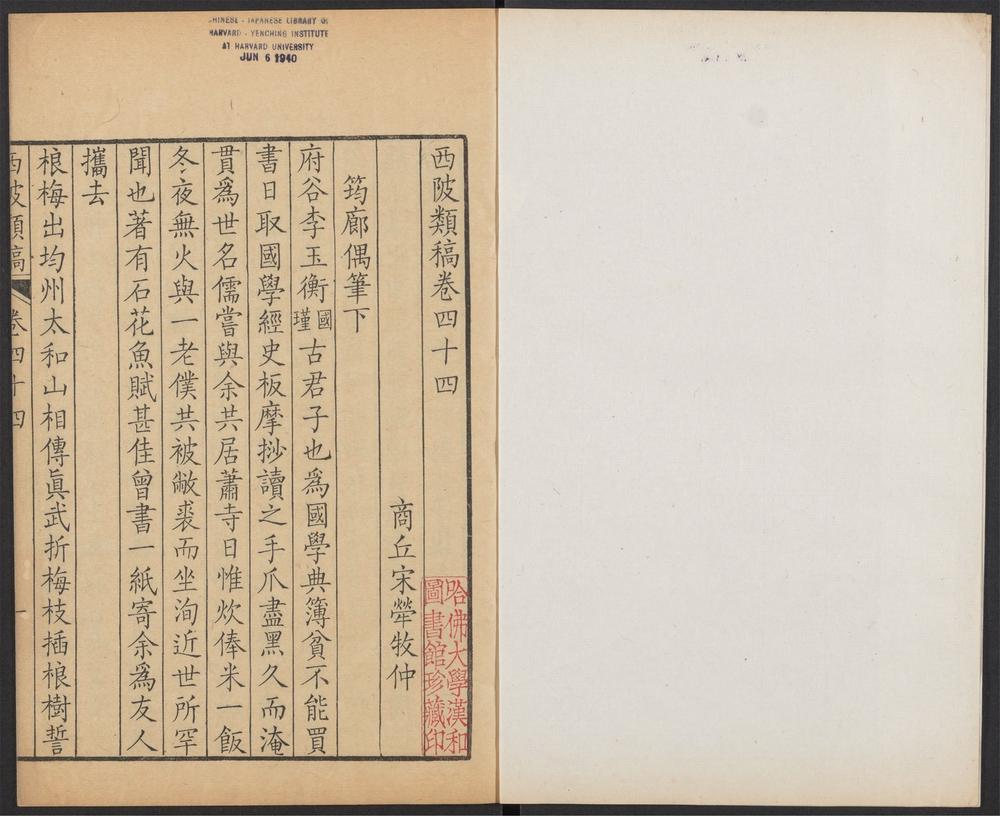 CHINESE - JAPANESE LIBRARY OF
HARVARD - YENCHING INSTITUTE
AT HARVARD UNIVERSITY
JUN 6 1940
西陂類稿卷四十四
商丘宋犖牧仲
筠廊偶筆下
府谷李玉衡國瑾古君子也爲國學典簿貧不能買
書日取國學經史板摩挱讀之手爪盡黑久而淹
貫爲世名儒嘗與余共居蕭寺日惟炊俸米一飯
冬夜無火與一老僕共被敝裘而坐洵近世所罕
聞也著有石花魚賦甚佳曾書一紙寄余爲友人
攜去
榔梅出均州太和山相傳眞武折梅枝插榔樹誓
西陂類稿 卷四十四 一
哈佛大學漢和
圖書館珍藏印